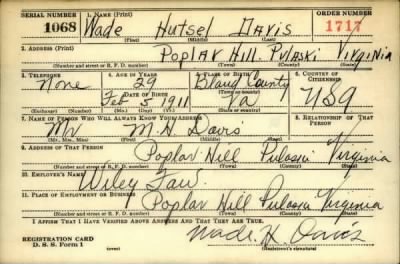 SERIAL NUMBER 1. NAME (Print) ORDER NUMBER
1068 Wade Hutsel Davis 1717
(First) (Middle) (Last)
2. ADDRESS (Print)
Poplar Hill. Pulaski Virginia
(Number and street or R. F. D. number) (Town) (County) (State)
3. TELEPHONE 4. AGE IN YEARS 5. PLACE OF BIRTH 6. COUNTRY OF CITIZENSHIP
None 29 Bland County
DATE OF BIRTH (Town or county)
Feb 5 1911 Va USA
(Exchange) (Number) (Mo.) (Day) (Yr.) (State or country)
7. NAME OF PERSON WHO WILL ALWAYS KNOW YOUR ADDRESS 8. RELATIONSHIP OF THAT PERSON
Mr M. H. Davis
(Mr., Mrs., Miss) (First) (Middle) (Last)
9. ADDRESS OF THAT PERSON
Poplar Hill Pulaski Virginia
(Number and street or R. F. D. number) (Town) (County) (State)
10. EMPLOYER'S NAME
Wiley
11. PLACE OF EMPLOYMENT OR BUSINESS
Poplar Hill Pulaski Virginia
(Number and street or R. F. D. number) (Town) (County) (State)
I AFFIRM THAT I HAVE VERIFIED ABOVE ANSWERS AND THAT THEY ARE TRUE.
REGISTRATION CARD Wade H. Davis
D. S. S. Form 1 (Registrant's signature)